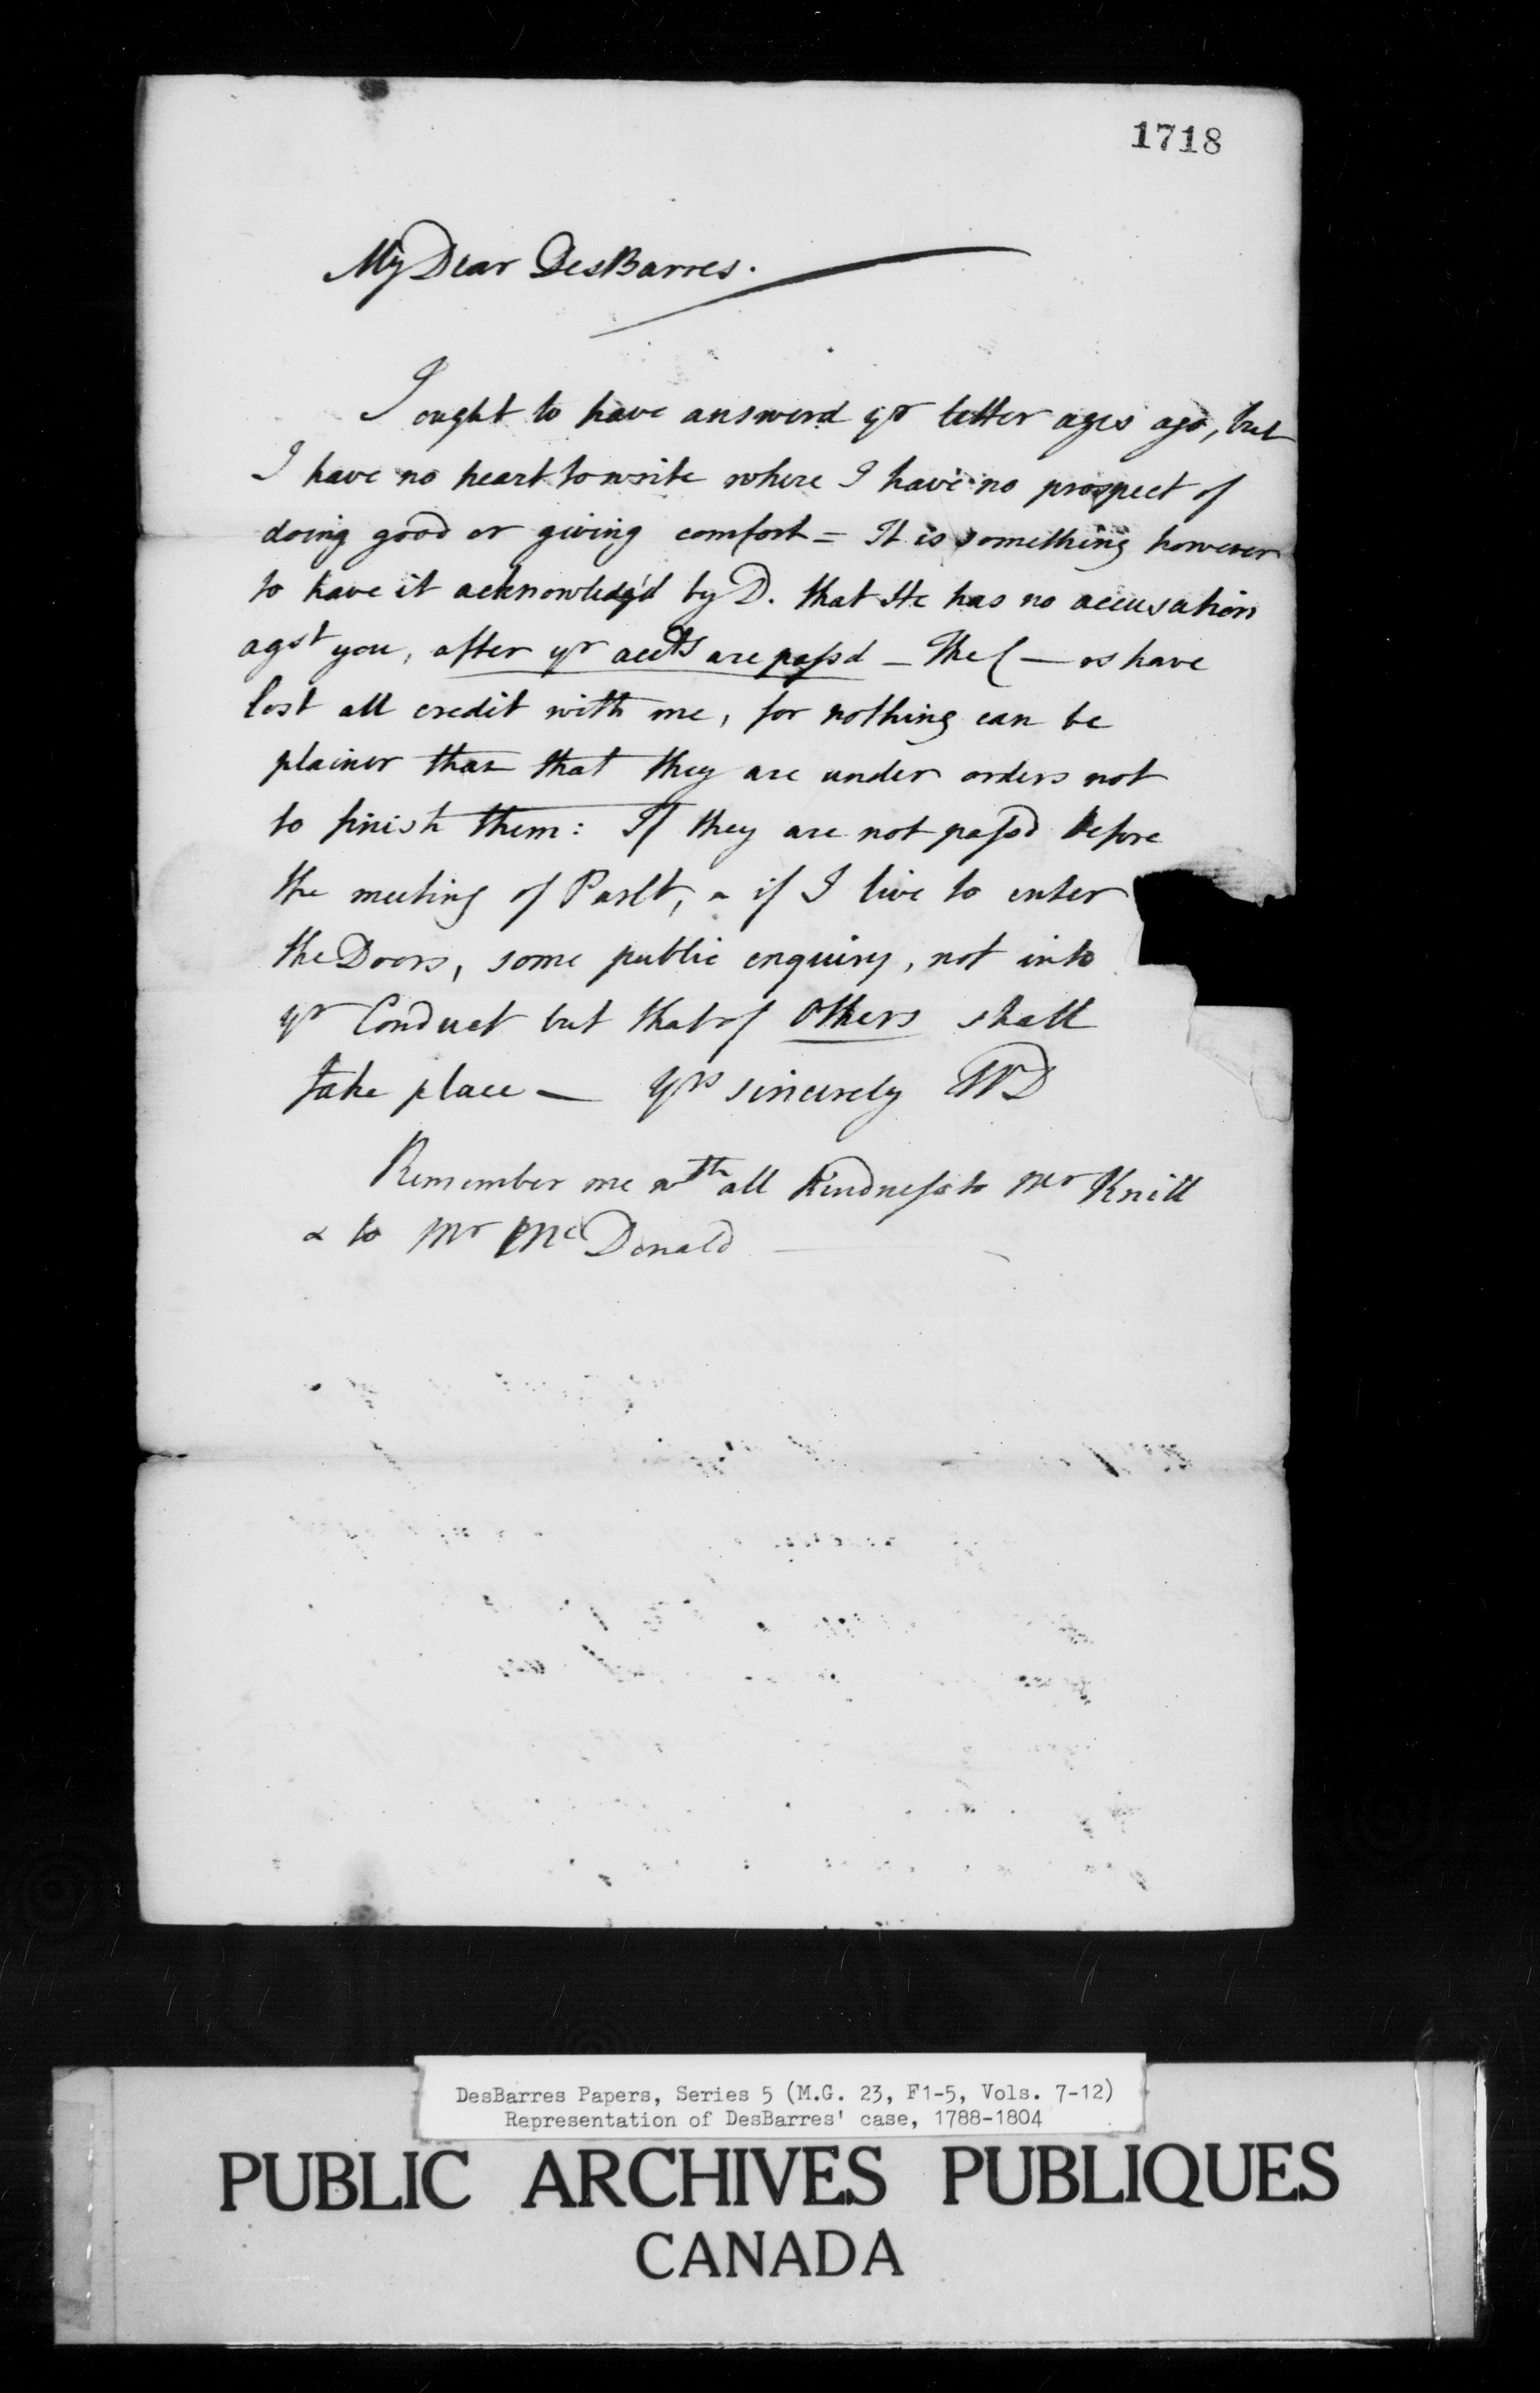 1718
My Dear DesBarres.
I ought to have answerd yr letter ages ago, but
I have no heart to write where I have no prospect of
doing good or giving comfort = It is something however
to have it acknowledg'd by D. that He has no accusation
agst you, after yr accts are passd — The C — rs have
lost all credit with me, for nothing can be
plainer than that they are under orders not
to finish them: If they are not passd before
the meeting of Parlt, & if I live to enter
the Doors, some public enquiry, not into
yr Conduct but that of others shall
take place — Yrs sincerely WD
Remember me wth all kindness to Mr Knill
& to Mr McDonald
DesBarres Papers, Series 5 (M.G. 23, F1-5, Vols. 7-12)
Representation of DesBarres' case, 1788-1804
PUBLIC ARCHIVES PUBLIQUES
CANADA